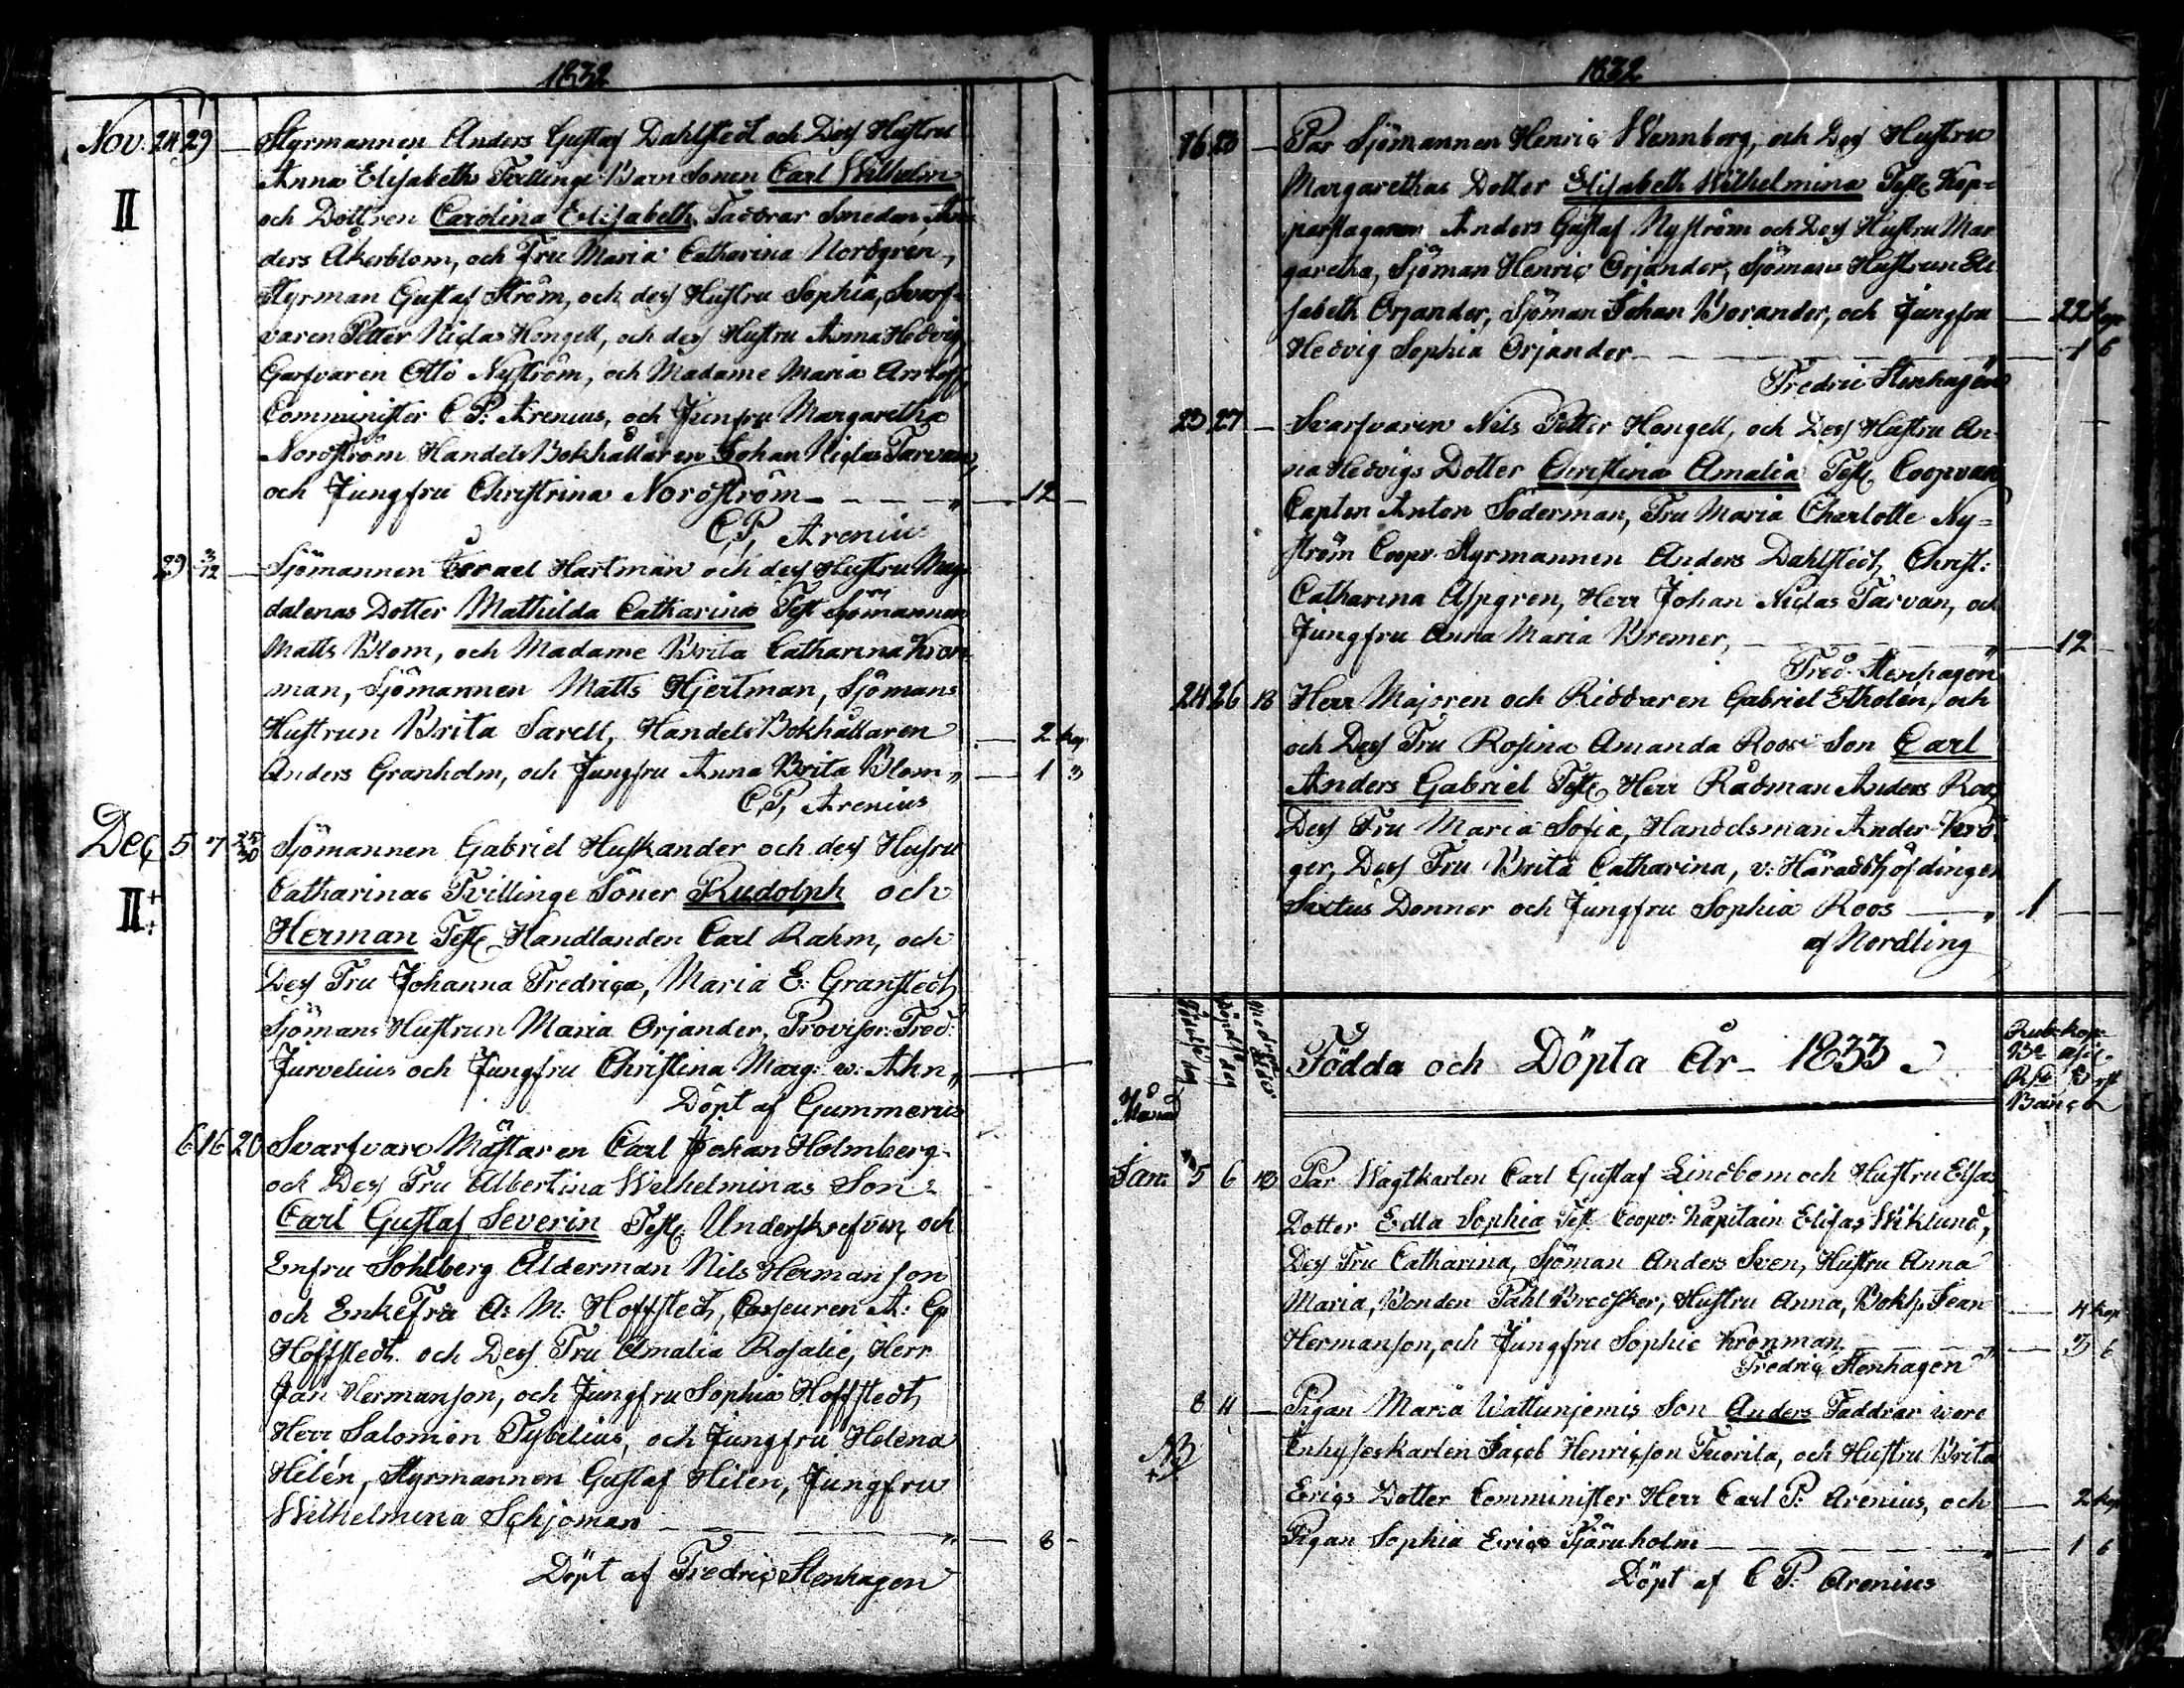 1832
Nov. 24 29 — Styrmannen Anders Gustaf Dahlstedt och Dess Hustru
Anna Elisabeths Tvillinge Barn Sonen Carl Wilhelm
II och Dottren Carolina Elisabeth, Faddrar Smeden An-
ders Åkerblom, och Fru Maria Catharina Nordgren,
Styrman Gustaf Ström, och dess Hustru Sophia, Svarf-
varen Petter Niclas Hongell, och dess Hustru Anna Hedvig,
Garfvaren Otto Nyström, och Madame Maria
Comminister C P: Arenius, och Junfru Margaretha
Nordström Handels Bokhållaren Johan Niclas Tarvan,
och Jungfru Christina Nordström — — — — „ — 12 —
C, P, Arenius
29 3/12 — Sjömannen Israel Hartman och dess Hustru Mag
dalenas Dotter Mathilda Catharina Test Sjömannen
Matts Blom, och Madame Brita Catharina Kron
man, Sjömannen Matts Hjertman, Sjömans
Hustrun Brita Sarell, Handels Bokhållaren — 2 kop
Anders Granholm, och Jungfru Anna Brita Blom „ — 1 „
C, P, Arenius
Dec 5 7 25/30 Sjömannen Gabriel Huskander och dess Husru
Catharinas Tvillinge Söner Rudolph och
II Herman Test, Handlanden Carl Rahm, och
Dess Fru Johanna Fredrica, Maria E: Granstedt,
Sjömans Hustrun Maria Orjander, Provisor: Fred:
Jurvelius och Jungfru Christina Marg: w: Ahn „
Döpt af Gummerus
6 16 20 Svarfvare Mästaren Carl Johan Holmberg
och Dess Fru Albertina Wilhelminas Son
Carl Gustaf Severin Test: Underskrefven, och
Enfru Sohlberg Ålderman Nils Hermanson
och EnkeFru A: M: Hoffstedt, Casseuren A: G:
Hoffstedt och Dess Fru Amalia Rosalie, Herr
Jan Hermanson, och Jungfru Sophia Hoffstedt,
Herr Salomon Tybelius, och Jungfru Helena
Hilén, Styrmannen Gustaf Hilen, Jungfru
Wilhelmina Schjoman — — — — „ — 8 —
Döpt af Fredric Stenhagen
1832
16 20 — Par Sjömannen Henric Wennberg, och Dess Hustru
Margarethas Dotter Elisabeth Wilhelmina Test, Kop-
parslagaren Anders Gustaf Nyström och Dess Hustru Mar
garetha, Sjöman Henric Orjander, Sjömans Hustrun Eli
sabeth Orjander, Sjöman Johan Borander, och Jungfru — 22 kop
Hedvig Sophia Orjander — — — — „ — 1 6
Fredric Stenhagen
23 27 — Svarfvaren Nils Petter Hongell, och Dess Hustru An-
na Hedvigs Dotter Christina Amalia Test, Coopvan
Capten Anton Söderman, Fru Maria Charlotte Ny=
ström Coopv. Styrmannen Anders Dahlstedt, Christ:
Catharina Aspgren, Herr Johan Niclas Tarvan, och
Jungfru Anna Maria Bremer, — — — „ — 12 —
Fred. Stenhagen
24 26 18 Herr Majoren och Riddaren Gabriel Etholén, och
och Dess Fru Rosina Amanda Roos Son Carl
Anders Gabriel Test, Herr Rådman Anders Roos
Dess Fru Maria Sofia, Handelsman Ander Krö
ger, Dess Fru Brita Catharina, v: Häradshöfdingen
Sixtus Donner och Jungfru Sophia Roos — „ 1 —
af Nordling
Födda och Döpta År 1833
Månad
Jan: 5 6 Par Wagtkarlen Carl Gustaf Lindbom och Hustru Elsas
Dotter Edla Sophia Test Coopv: Kapitain Elisas Wiklund,
Dess Fru Catharina, Sjöman Anders Sven, Hustru Anna
Maria, Bonden Påhl Brodsker, Hustru Anna, Bokh: Jean — 4 kop
Hermanson, och Jungfru Sophie Kronman — — „ — 3 6
Fredric Stenhagen
8 11 — Pigan Maria Wattunjemis Son Anders Faddrar wore
NB Inhyseskarlen Jacob Henricson Tuorila, och Hustru Brita
Erics Dotter Comminister Herr Carl P: Arenius, och — 2 kop
Pigan Sophia Erics Tjäruholm — — — — „ — 1 6
Döpt af C P: Arenius